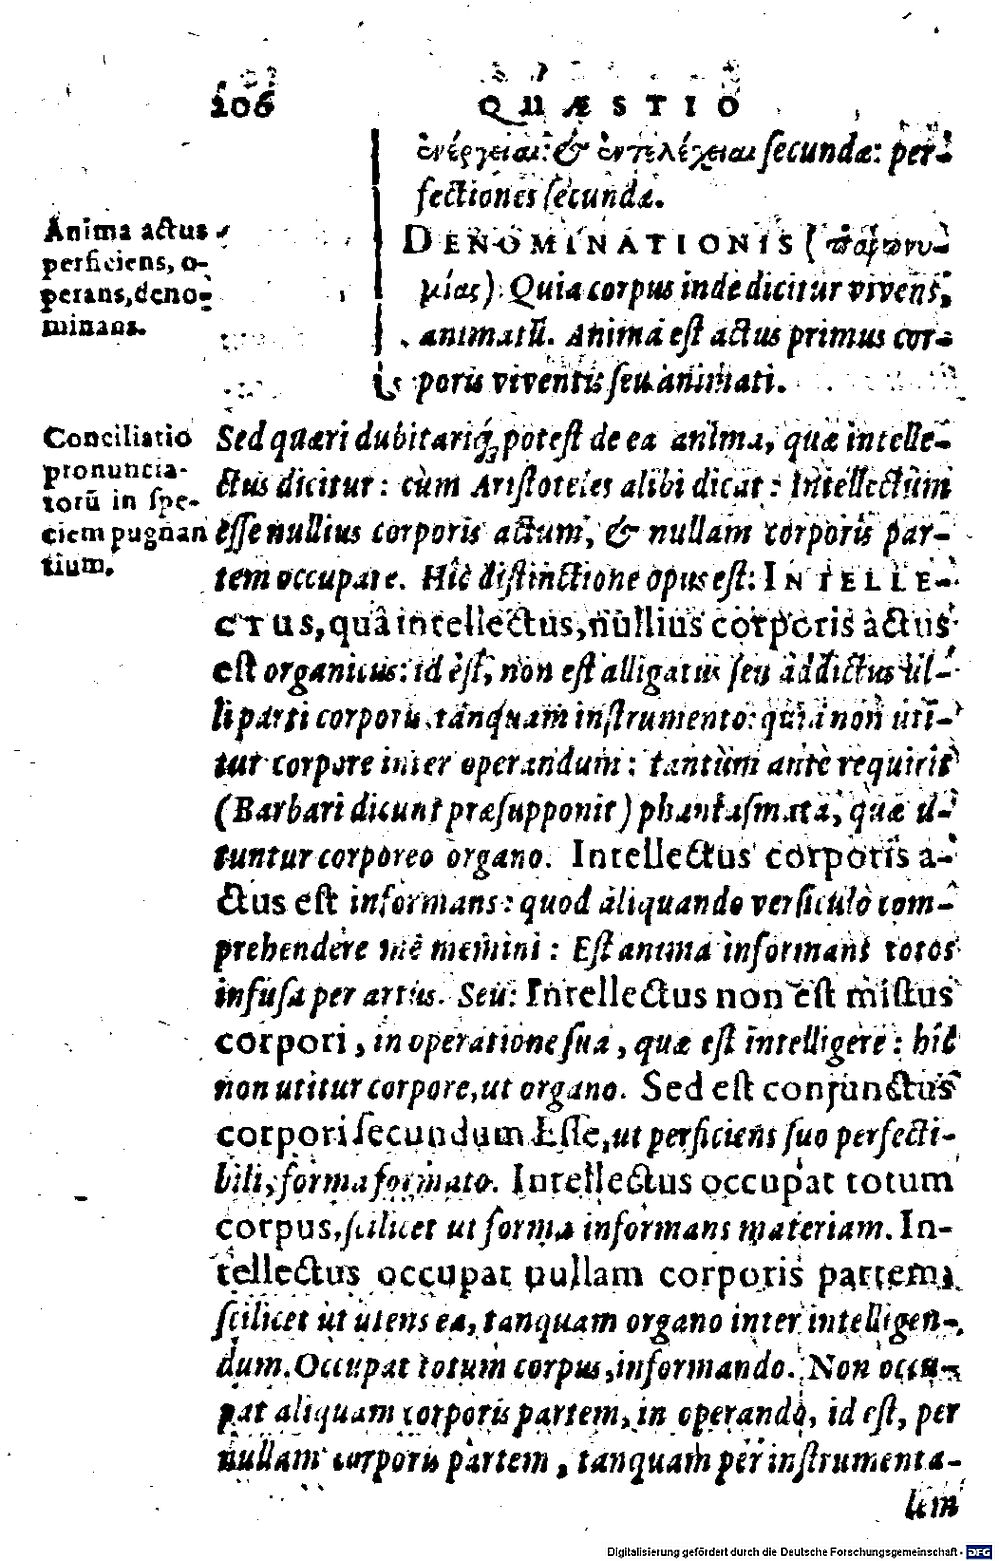 206
QUÆSTIO
ἐνέργειαι: & ἐντελέχειαι secundæ: per-
fectiones secundæ.
DENOMINATIONIS (παρωνυ-
μίας) Quia corpus inde dicitur vivens,
animatũ. Anima est actus primus cor-
poris viventis seu animati.
Anima actus
perficiens, o-
perans, deno-
minans.
Conciliatio
pronuncia-
torũ in spe-
ciem pugnan
tium.
Sed quæri dubitariq; potest de ea anima, quæ intelle-
ctus dicitur: cùm Aristoteles alibi dicat: Intellectùm
esse nullius corporis actum, & nullam corporis par-
tem occupare. Hîc distinctione opus est: INTELLE-
CTUS, quâ intellectus, nullius corporis actus
est organicus: id est, non est alligatus seu addictus ul-
li parti corporis, tanquam instrumento: quia non uti-
tur corpore inter operandum: tantùm antè requirit
(Barbari dicunt præsupponit) phantasmata, quæ u-
tuntur corporeo organo. Intellectus corporis a-
ctus est informans: quod aliquando versiculo com-
prehendere mê memini: Est anima informans totos
infusa per artus. Seu: Intellectus non est mistus
corpori, in operatione sua, quæ est intelligere: hîc
non utitur corpore, ut organo. Sed est conjunctus
corpori secundum Esse, ut perficiens suo perfecti-
bili, forma formato. Intellectus occupat totum
corpus, scilicet ut forma informans materiam. In-
tellectus occupat nullam corporis partem,
scilicet ut utens ea, tanquam organo inter intelligen-
dum. Occupat totum corpus, informando. Non occu-
pat aliquam corporis partem, in operando, id est, per
nullam corporis partem, tanquam per instrumenta-
lem
Digitalisierung gefördert durch die Deutsche Forschungsgemeinschaft - DFG